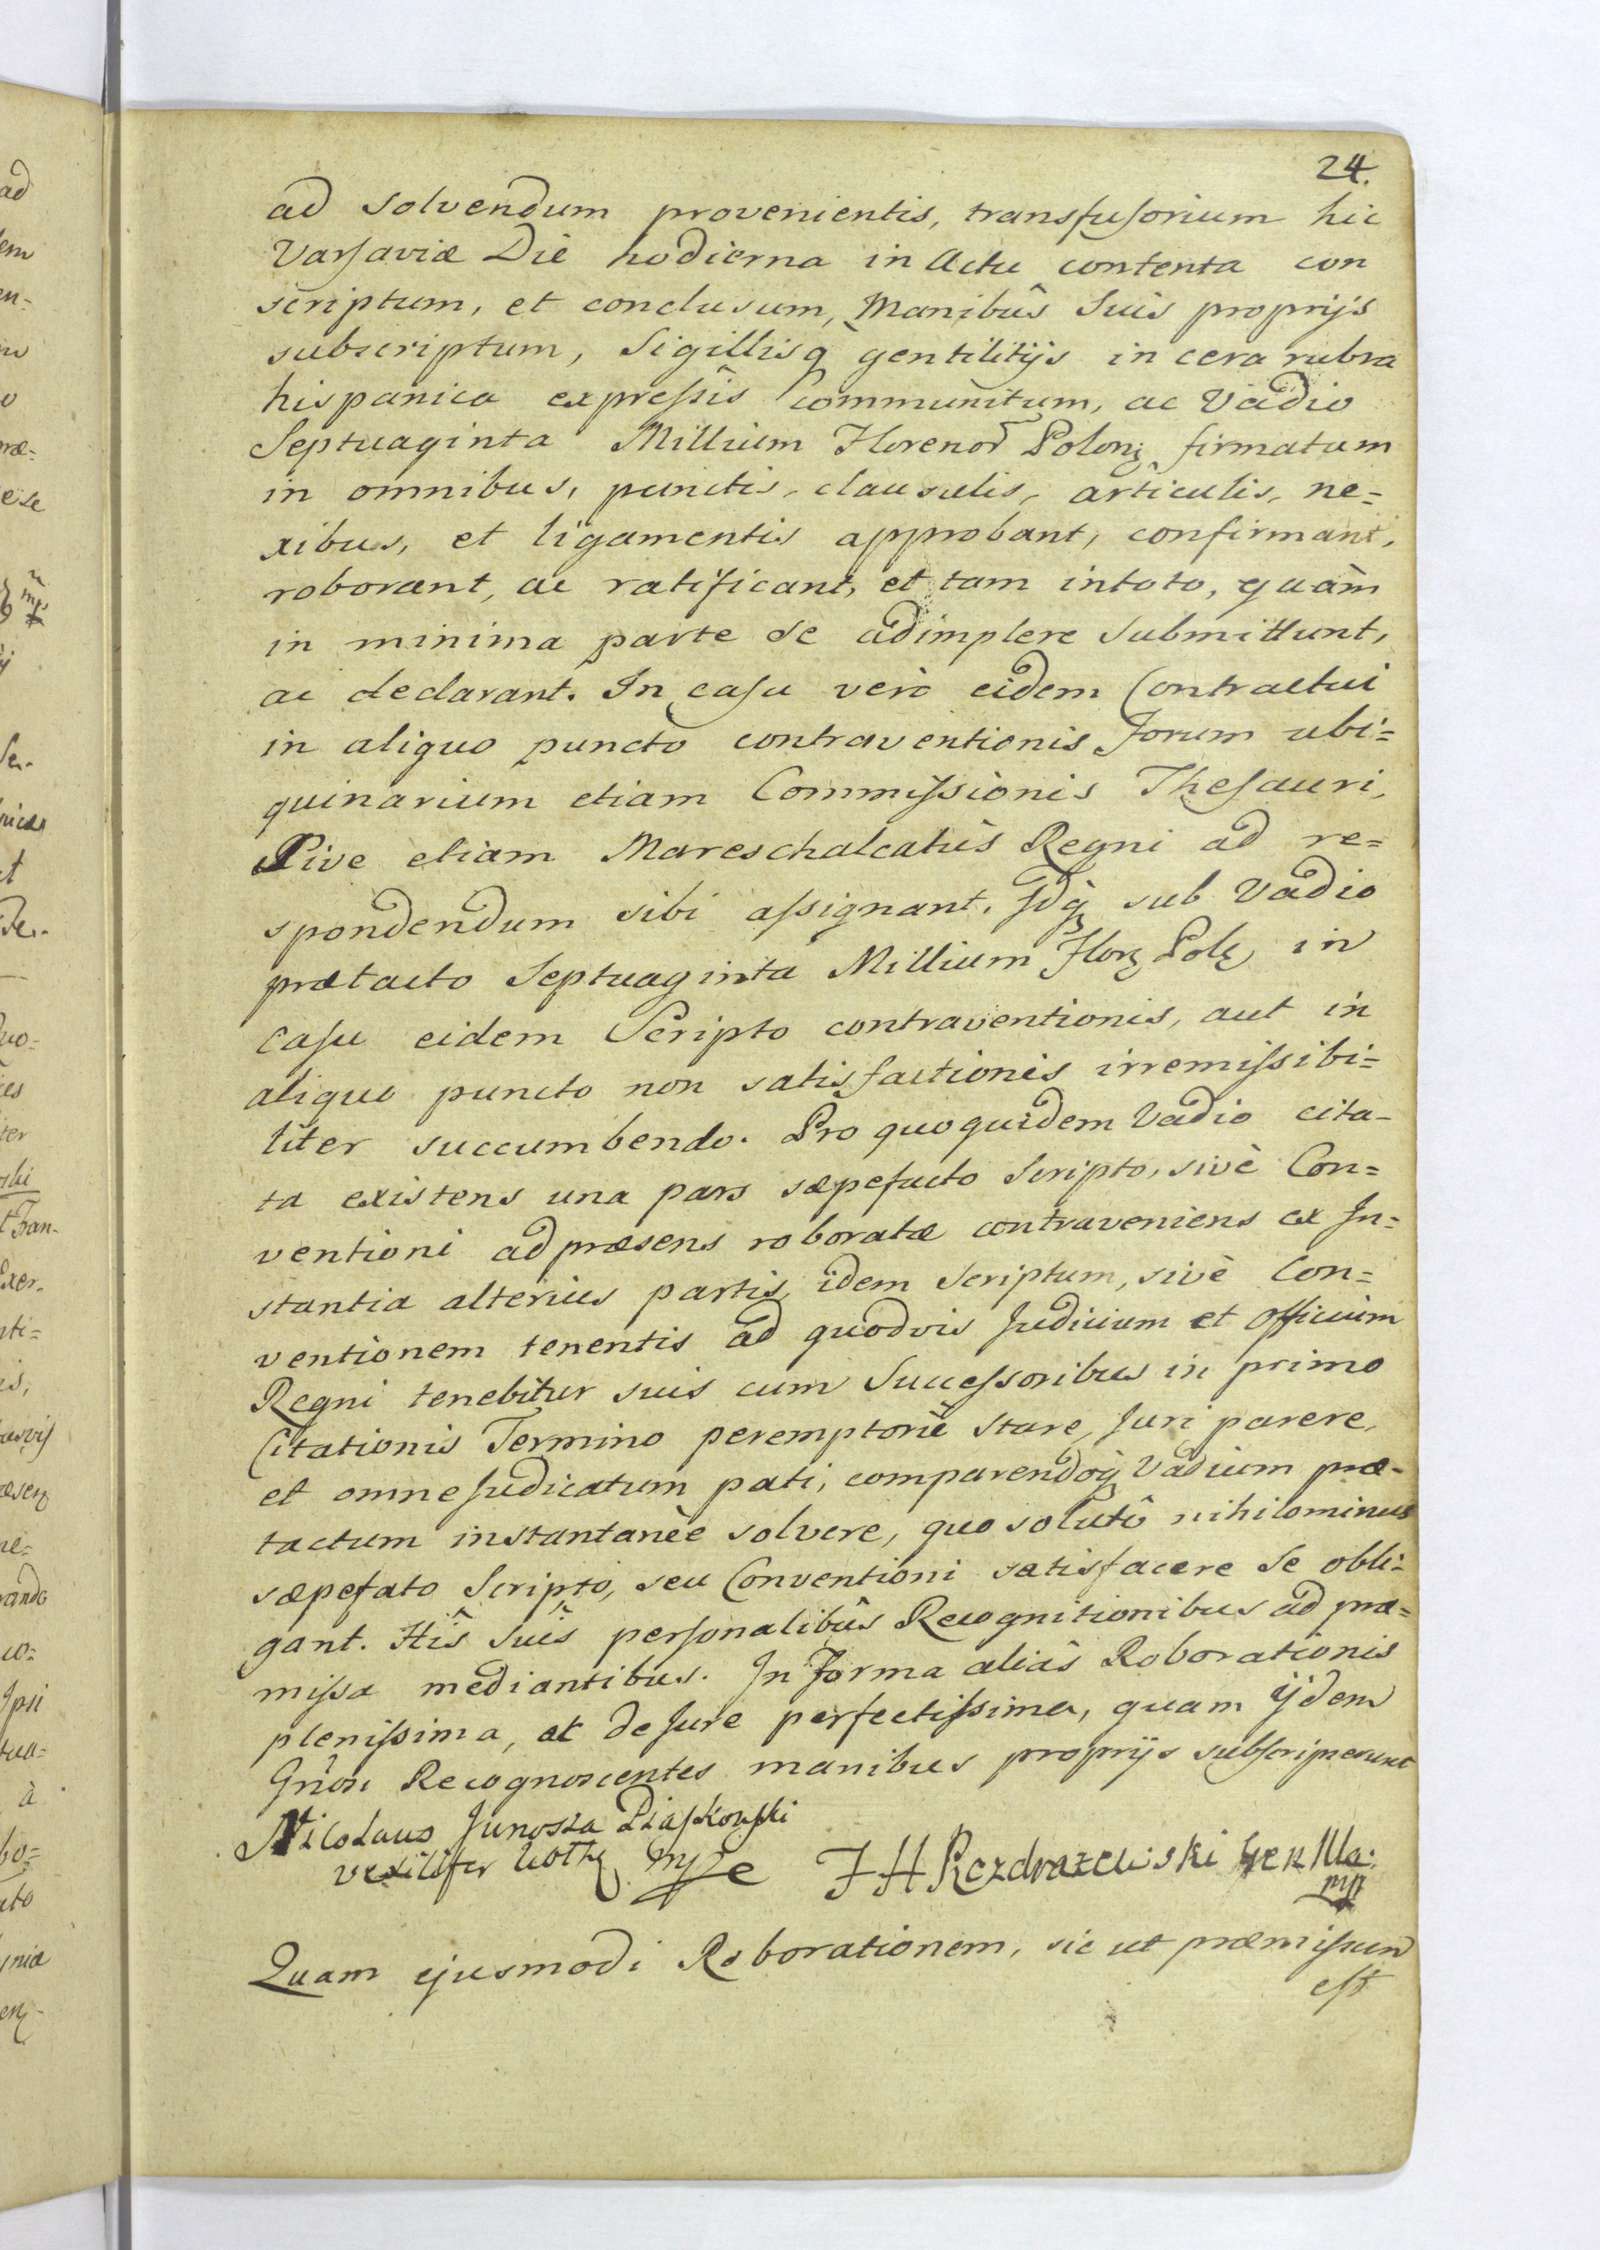 24.
ad solvendum provenientis, transfuſorium hic
Varſaviæ Die hodierna in Actu contenta con
scriptum, et conclusum, Manibûs Suis proprijs
subscriptum, Sigillisq̃ gentilitijs in cera rubra
hispanica expreſsîs communitum, ac Vadio
Septuaginta Millium Florenor̃ Polonꝫ firmatum
in omnibus, punctis, clausulis, articulis, ne=
xibus, et ligamentis approbant, confirmant,
roborant, ac ratificant, et tam intoto, quàm
in minima parte se adimplere submittunt,
ac declarant. In caſu verò eidem Contractui
in aliquo puncto contraventionis Forum ubi=
quinarium etiam Commiſsionis Theſauri,
Sive etiam Mareschalcatûs Regni ad re=
spondendum sibi aſsignant, Idq̃ sub Vadio
prætacto Septuaginta Millium Florꝫ Polꝫ in
caſu eidem Scripto contraventionis, aut in
aliquo puncto non satisfactionis irremiſsibi=
liter succumbendo. Pro quoquidem Vadio cita-
ta existens una pars sæpefacto Scripto, sivè Con=
ventioni adpræsens roboratæ contraveniens ex In=
stantia alterius partis, idem Scriptum, sivè Con=
ventionem tenentis ad quodvis Judicium et Officium
Regni tenebitur suis cum Succeſsoribus in primo
Citationis Termino peremptoriè stare, Juri parere,
et omne Judicatum pati, comparendoq̃ Vadium præ-
tactum instantanèe solvere, quo solutô nihilominus
sæpefato Scripto, seu Conventioni satisfacere se obli=
gant. Hîs Suîs perſonalibûs Recognitionibus ad præ=
miſsa mediantibus. In Forma aliàs Roborationis
pleniſsima, et de Jure perfectiſsima, quam ijdem
Gñosi Recognoscentes manibus proprijs subſcripserunt
Nicolaus Junosza Piaſkowſki
vexilifer
F H Rozdrazewski Gen Ma:
mp
Quam ejusmodi Roborationem, sic ut præmiſsum
eſt